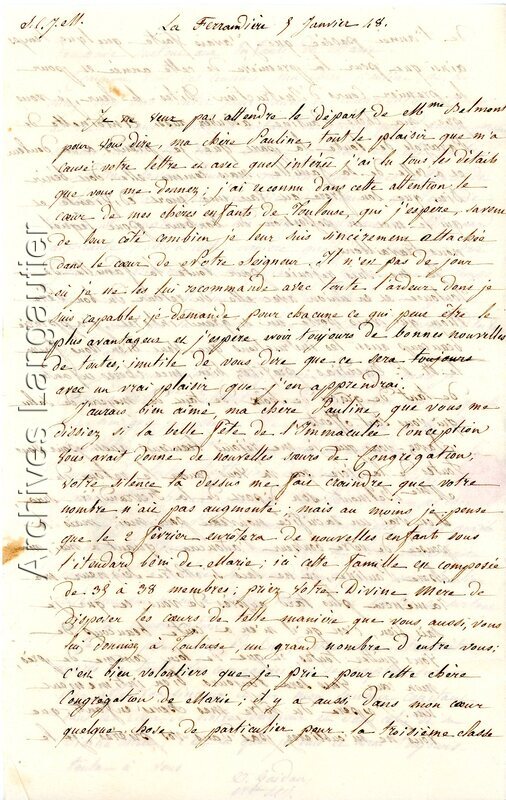 S.C.J.M. La Ferrandière 5 Janvier 48.
Je ne veux pas attendre le départ de Mme Belmont
pour vous dire, ma chère Pauline, tout le plaisir que m'a
causé votre lettre et avec quel intérêt j'ai lu tous les détails
que vous me donnez; j'ai reconnu dans cette attention le
cœur de mes chères enfants de Toulouse, qui j'espère, savent
de leur côté combien je leur suis sincèrement attachée
dans le cœur de Notre Seigneur. Il n'est pas de jour
où je ne les lui recommande avec toute l'ardeur dont je
suis capable; je demande pour chacune ce qui peut être le
plus avantageux et j'espère avoir toujours de bonnes nouvelles
de toutes; inutile de vous dire que ce sera toujours
avec un vrai plaisir que j'en apprendrai.
J'aurais bien aimé, ma chère Pauline, que vous me
dissiez si la belle fête de l'Immaculée Conception
vous avait donné de nouvelles sœurs de Congrégation;
votre silence là dessus me fait craindre que votre
nombre n'aie pas augmenté; mais au moins je pense
que le 2 février enrôlera de nouvelles enfants sous
l'étendard béni de Marie; ici cette famille est composée
de 35 à 38 membres; priez votre Divine Mère de
disposer les cœurs de telle manière que vous aussi, vous
lui donniez à Toulouse, un grand nombre d'entre vous;
c'est bien volontiers que je prie pour cette chère
Congrégation de Marie; il y a aussi dans mon cœur
quelque chose de particulier pour la troisième classe
Archives Langautier